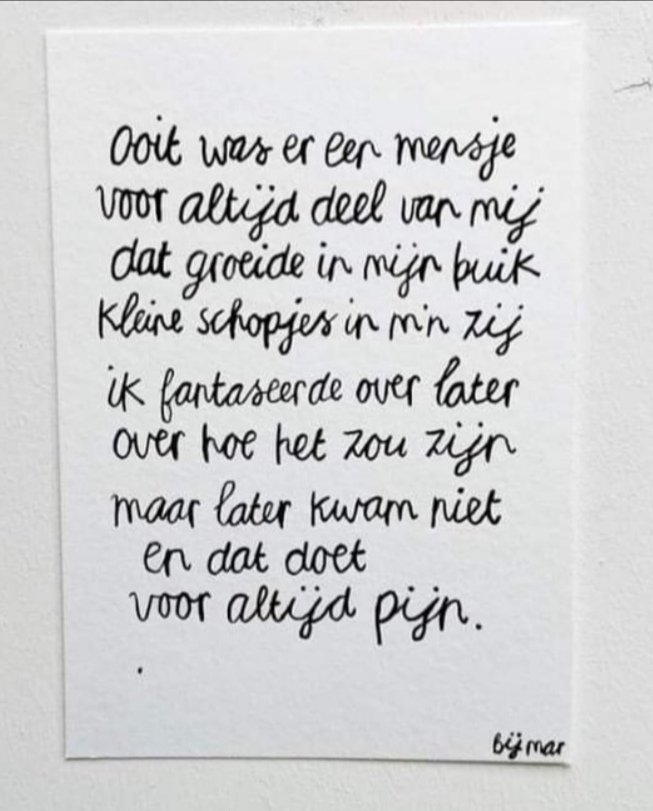 Ooit was er een mensje
voor altijd deel van mij
dat groeide in mijn buik
kleine schopjes in m'n zij
ik fantaseerde over later
over hoe het zou zijn
maar later kwam niet
en dat doet
voor altijd pijn.
.
bijmar